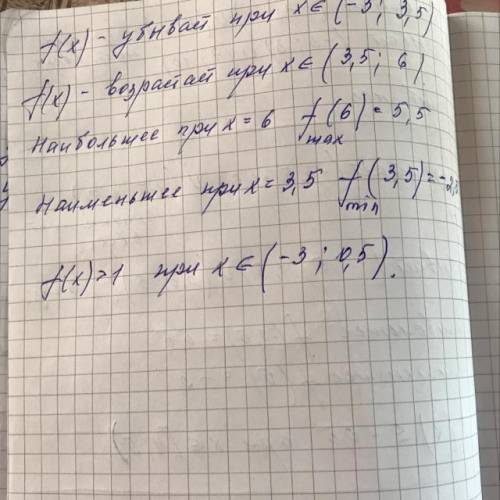 f(x) - убывает при x ∈ (-3; 3,5)
f(x) - возрастает при x ∈ (3,5; 6)
Наибольшее при x = 6 f(6) = 5,5
max
Наименьшее при x = 3,5 f(3,5) = -2,
min
f(x)>1 при x ∈ (-3; 0,5).